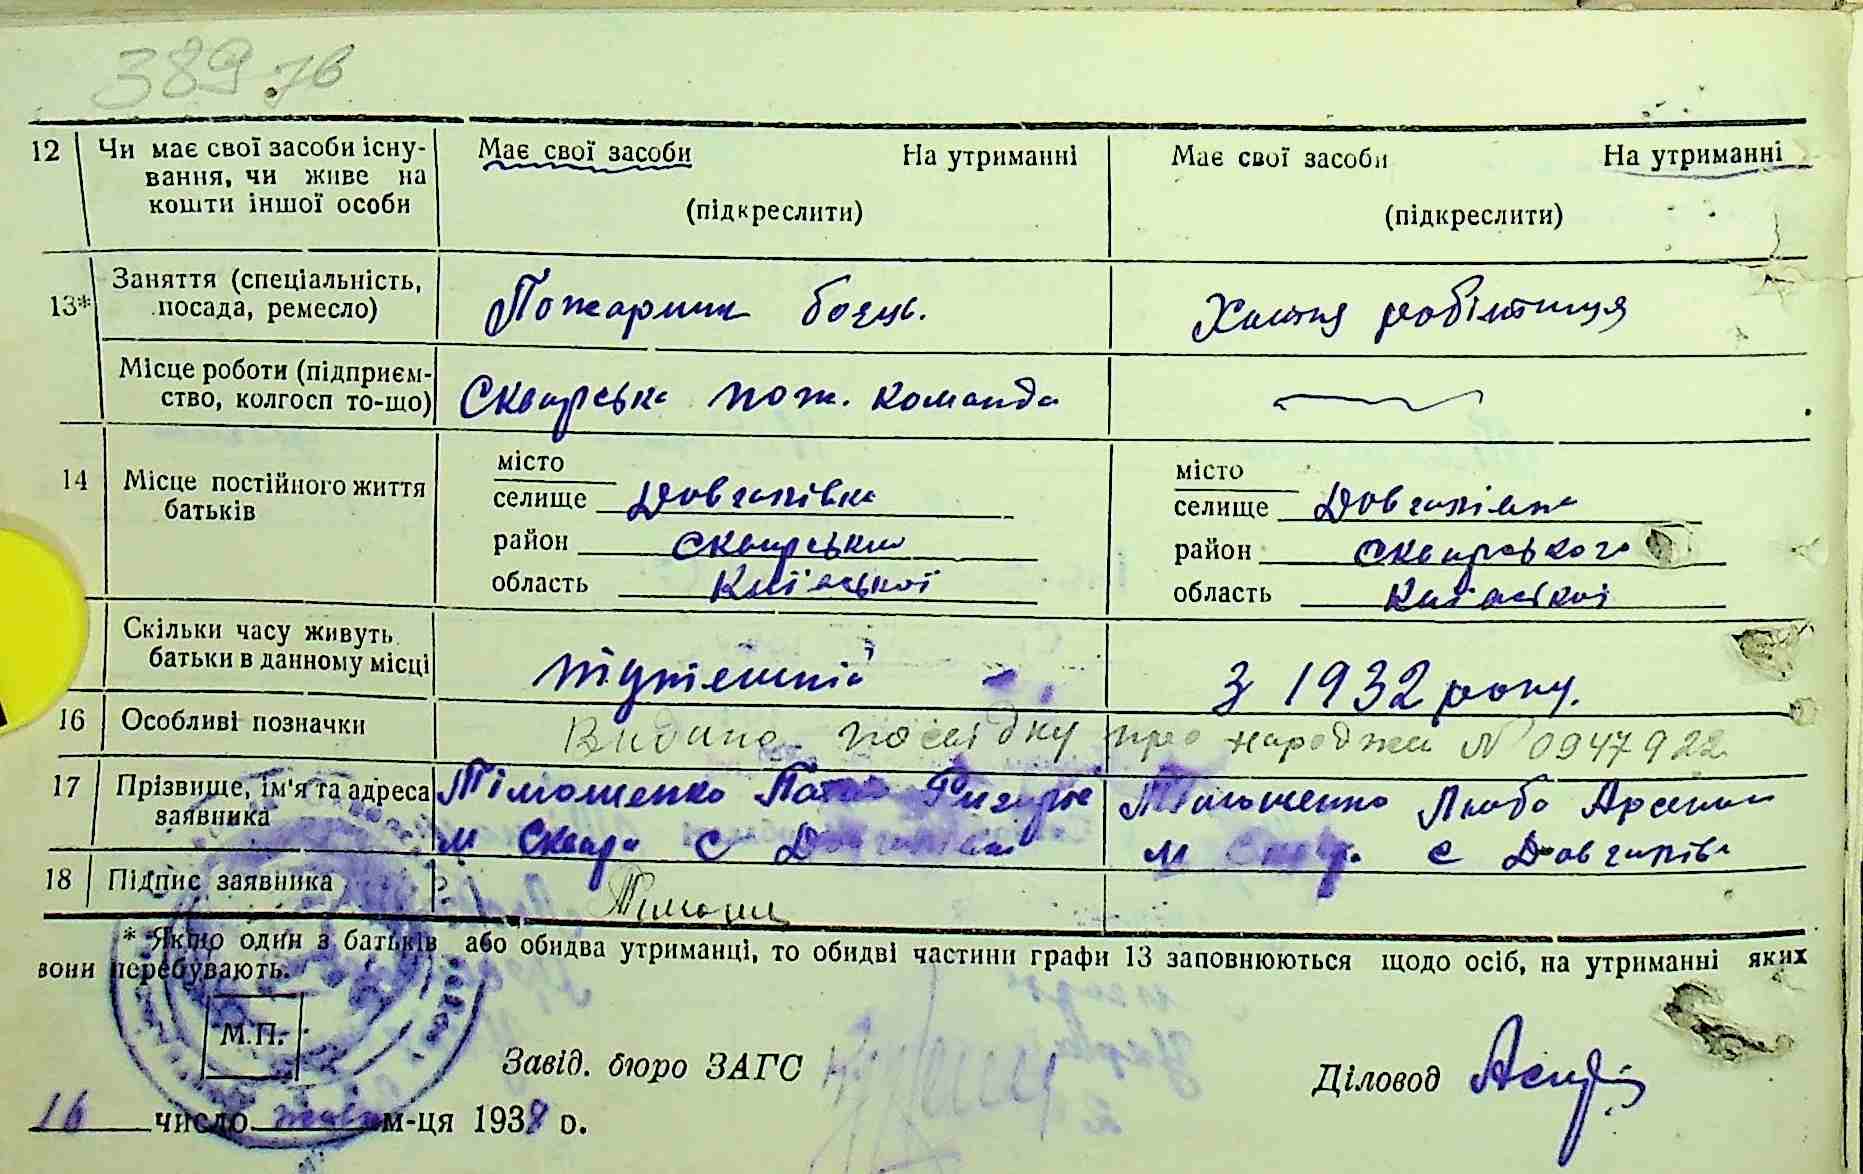 389 зв
12 Чи має свої засоби існу- Має свої засоби На утриманні Має свої засоби На утриманні
вання, чи живе на
кошти іншої особи (підкреслити) (підкреслити)
13* Заняття (спеціальність,
посада, ремесло) Пожарник боєць. Хатня робітниця
Місце роботи (підприєм-
ство, колгосп то-що) Сквирська пож. команда
14 Місце постійного життя
батьків
місто
селище Довгалівка
район Сквирський
область Київської
місто
селище Довгалівка
район Сквирського
область Київської
Скільки часу живуть
батьки в данному місці тутешній З 1932 року.
16 Особливі позначки Видано посвідку про народжен N 0947922
17 Прізвище, ім'я та адреса Тімошенко Тимошенко Люба Арсенів
заявника м Сквира с м с Довгалів
18 Підпис заявника Тимош
* Якщо один з батьків або обидва утриманці, то обидві частини графи 13 заповнюються щодо осіб, на утриманні яких
вони перебувають.
М.П.
Завід. бюро ЗАГС
Діловод
16 число м-ця 1938 р.